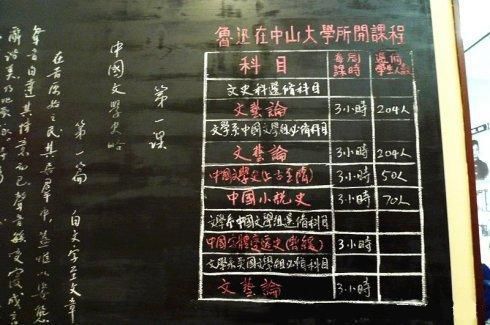 魯迅在中山大學所開課程
科目 每周課時 選脩學生人數
文史科選脩科目
文藝論 3小時 204人
文學系中國文學組必脩科目
文藝論 3小時 204人
中國文學史(上古至隋) 3小時 50人
中國小說史 3小時 70人
文學系中國文學組選脩科目
中國字體變遷史(暫緩) 3小時
文學系英國文學組必脩科目
文藝論 3小時
第一課
中國文學史略
第一篇 自文字至文章
在昔原始之民其居羣中蓋惟以姿態
聲音自達其情意而已聲音繁變寖成言
辭諧美乃兆歌